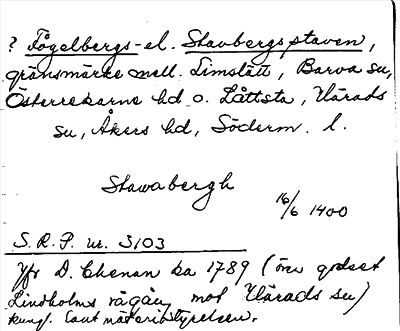 ? Fögelbergs- el. Stavbergsstaven,
gränsmärke mell. Limstätt, Barva sn,
Österrekarne hd o. Låttsta, Vårads
sn, Åkers hd, Söderm. l.
Stawabergh
16/6 1400
S. R. P. nr. 3103
Jfr D. Chenan ka 1789 (över godset
Lindholms rågång mot Vårads sn)
kungl. Lantmäteristyrelsen.